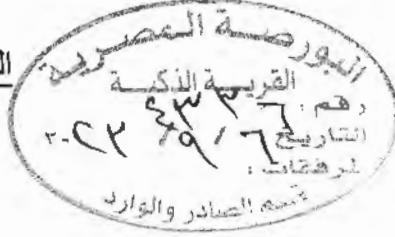 ال
البورصة المصرية
القرية الذكية
رقم : ٤٣٣٦
التاريخ ٦ / ٩ / ٢٠٢٣
المرفقات :
قسم الصادر والوارد